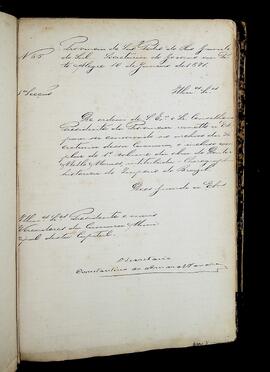 Nº 55
Provincia de São Pedro do Rio Grande
do Sul. Secretaria do Governo em Por
to Alegre 10 de Janeiro de 1881.
1ª Secção
Illmos Srs
De ordem de S. Exª o Sr. Conselheiro
Presidente da Provincia remetto a VSas
para ser
Camara o incluso exem
plar do 1º volume da obra do Doutor
Mello Moraes intitulada
historica do Imperio do Brazil
Deus guarde a VSas
Illmos Srs Presidente e mais
Vereadores da Camara Muni
cipal desta Capital.
O Secretario